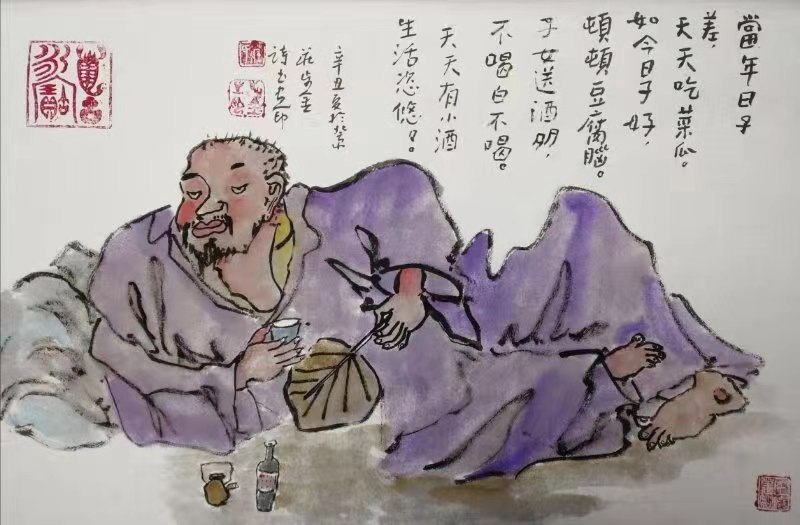 當年日子
差，
天天吃菜瓜。
如今日子好，
頓頓豆腐腦。
子女送酒明，
不喝白不喝。
天天有小酒
生活恣悠
辛丑夏於
诗书